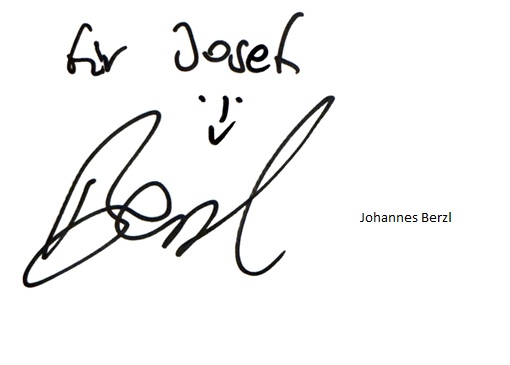 für Josef
Berzl
Johannes Berzl